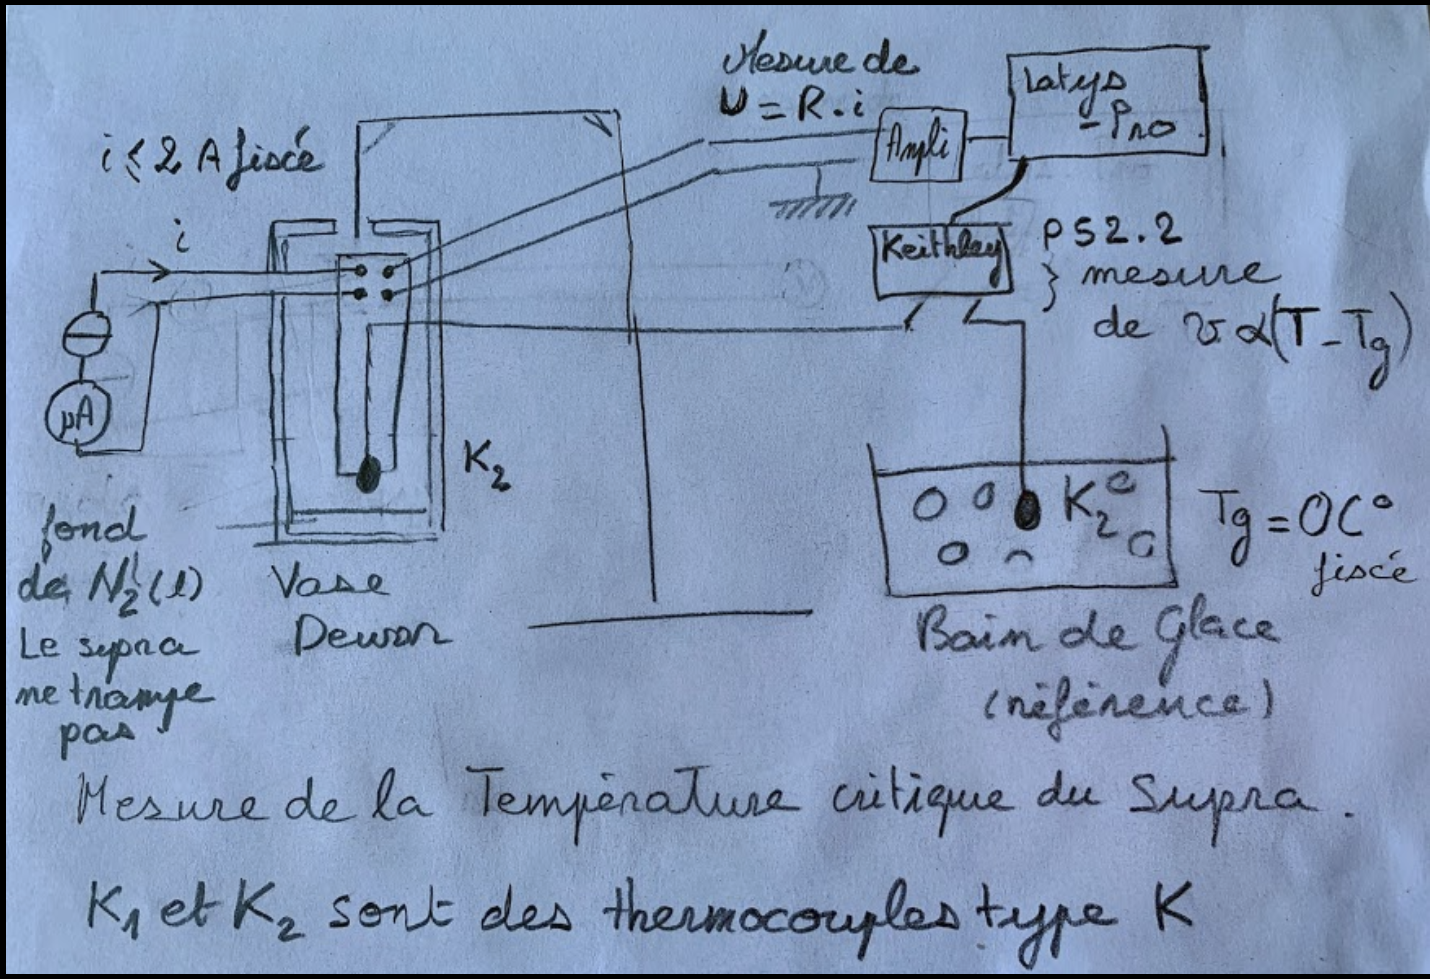 Mesure de
U = R . i
Latys
- Pro
Ampli
i ≤ 2 A fixé
i
Keithley
P52.2
} mesure
de v α (T - Tg)
µA
K₂
K₂
Tg = 0C°
fixée
fond
de N₂(l)
Le supra
ne trampe
pas
Vase
Dewar
Bain de Glace
(référence)
Mesure de la Température critique du Supra.
K₁ et K₂ sont des thermocouples type K